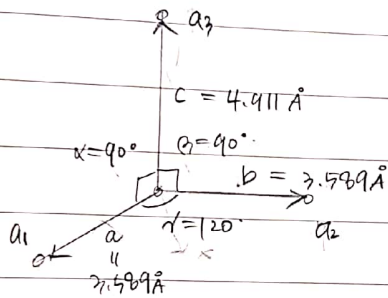 a3
c = 4.911 Å
α=90° β=90°
b = 3.589Å
a1 a γ=120° a2
=
3.589Å